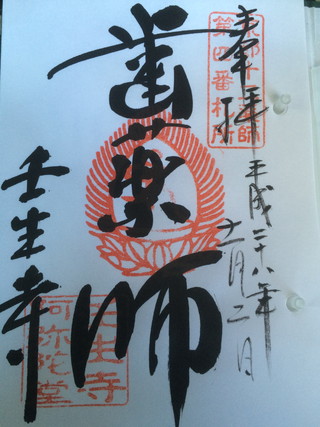 奉拝
平成二十八年
十一月二日
歯薬師
壬生寺
京都十二薬師
第四番札所
壬生寺
阿弥陀堂